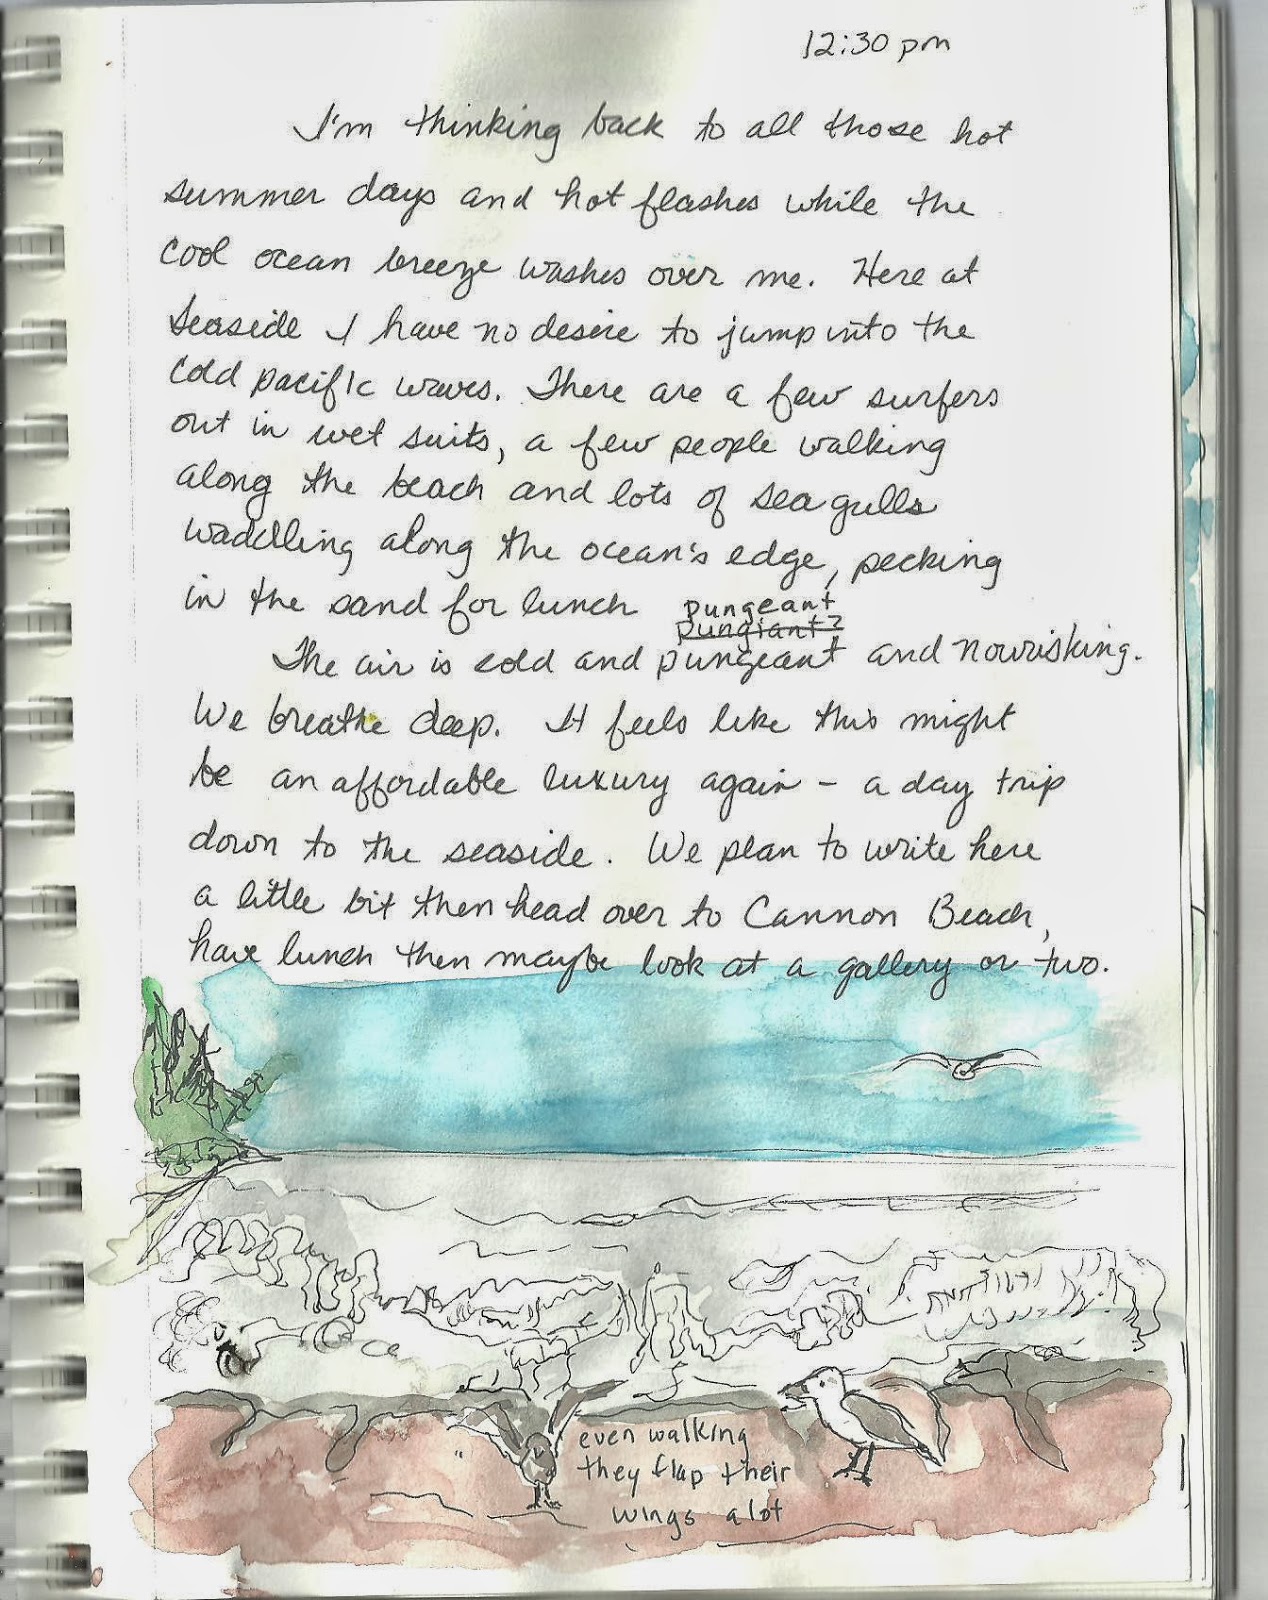 12:30 pm
I'm thinking back to all those hot
summer days and hot flashes while the
cool ocean breeze washes over me. Here at
Seaside I have no desire to jump into the
cold pacific waves. There are a few surfers
out in wet suits, a few people walking
along the beach and lots of sea gulls
waddling along the ocean's edge, pecking
in the sand for lunch
pungeant
pungiant?
The air is cold and pungeant and nourisking.
We breathe deep. It feels like this might
be an affordable luxury again - a day trip
down to the seaside. We plan to write here
a little bit then head over to Cannon Beach,
have lunch then maybe look at a gallery or two.
even walking
they flap their
wings alot